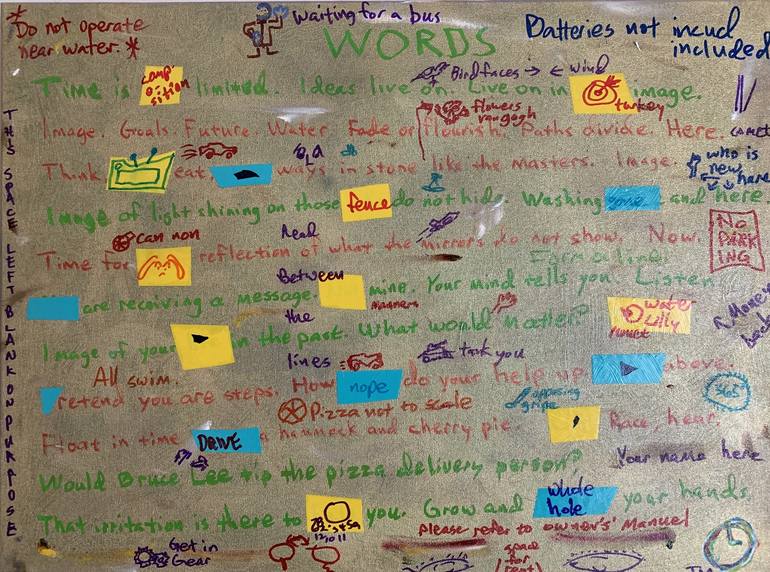 *Do not operate near water. *
Waiting for a bus
WORDS
Batteries not incud included
Time is limited. Ideas live on. Live on in image.
Bird faces → ← wind
turkey
Image. Goals. Future. Water. Fade or flourish. Paths divide. Here.
flowers
Think eat ways in stone like the masters. Image.
who is new here
Image of light shining on those fence do not hide. Washing and here.
can non
Read
NO PARKING
Time for reflection of what the mirrors do not show. Now.
Form a line!
Between
are receiving a message. mine. Your mind tells you. Listen
the
water lilly
Image of your in the past. What would matter?
Money back
lines
tank you
All swim.
retend you are steps. How nope do your help up. above.
365
opposing gripe
Pizza not to scale
Float in time DRIVE a hammock and cherry pie. Race, hear.
Your name here
Would Bruce Lee tip the pizza delivery person?
That irritation is there to you. Grow and whole hole your hands.
Please refer to owner's manuel
Get in Gear
space for rent
THIS SPACE LEFT BLANK ON PURPOSE